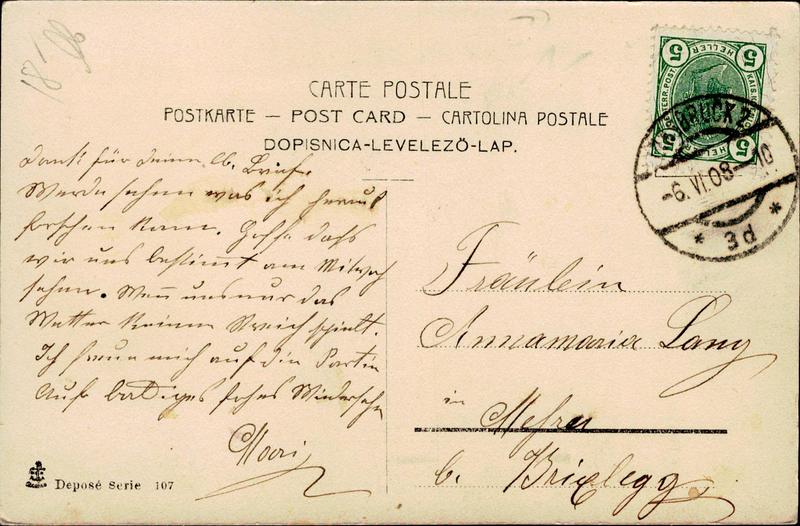 18 / VI 06
CARTE POSTALE
POSTKARTE — POST CARD — CARTOLINA POSTALE
DOPISNICA-LEVELEZÖ-LAP.
5 HELLER 5
5 HELLER 5
BRUCK 2
-6.VI.08-10
* 3d *
Dank für deinen lb. Brief.
Werde sehen was ich heraus
forschen kann. Hoffe dass
wir uns bestimmt am Mitwoch
sehen. Wenn uns nur das
Wetter keinen Streich spielt.
Ich freue mich auf die Partie
Auf baldiges frohes Wiedersehn
Fräulein
Annamaria Lang
in
b. Brixlegg
Deposé Serie 107